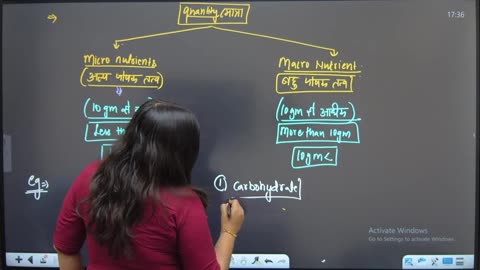 17:36
⇒ Quantity/मात्रा
Micro nutrients
(अल्प पोषक तत्व)
(10gm से
Less
Macro Nutrient
बहु पोषक तत्व
(10gm से अधिक)
More than 10gm
10gm<
eg⇒
① Carbohydrate
Activate Windows
Go to Settings to activate Windows.